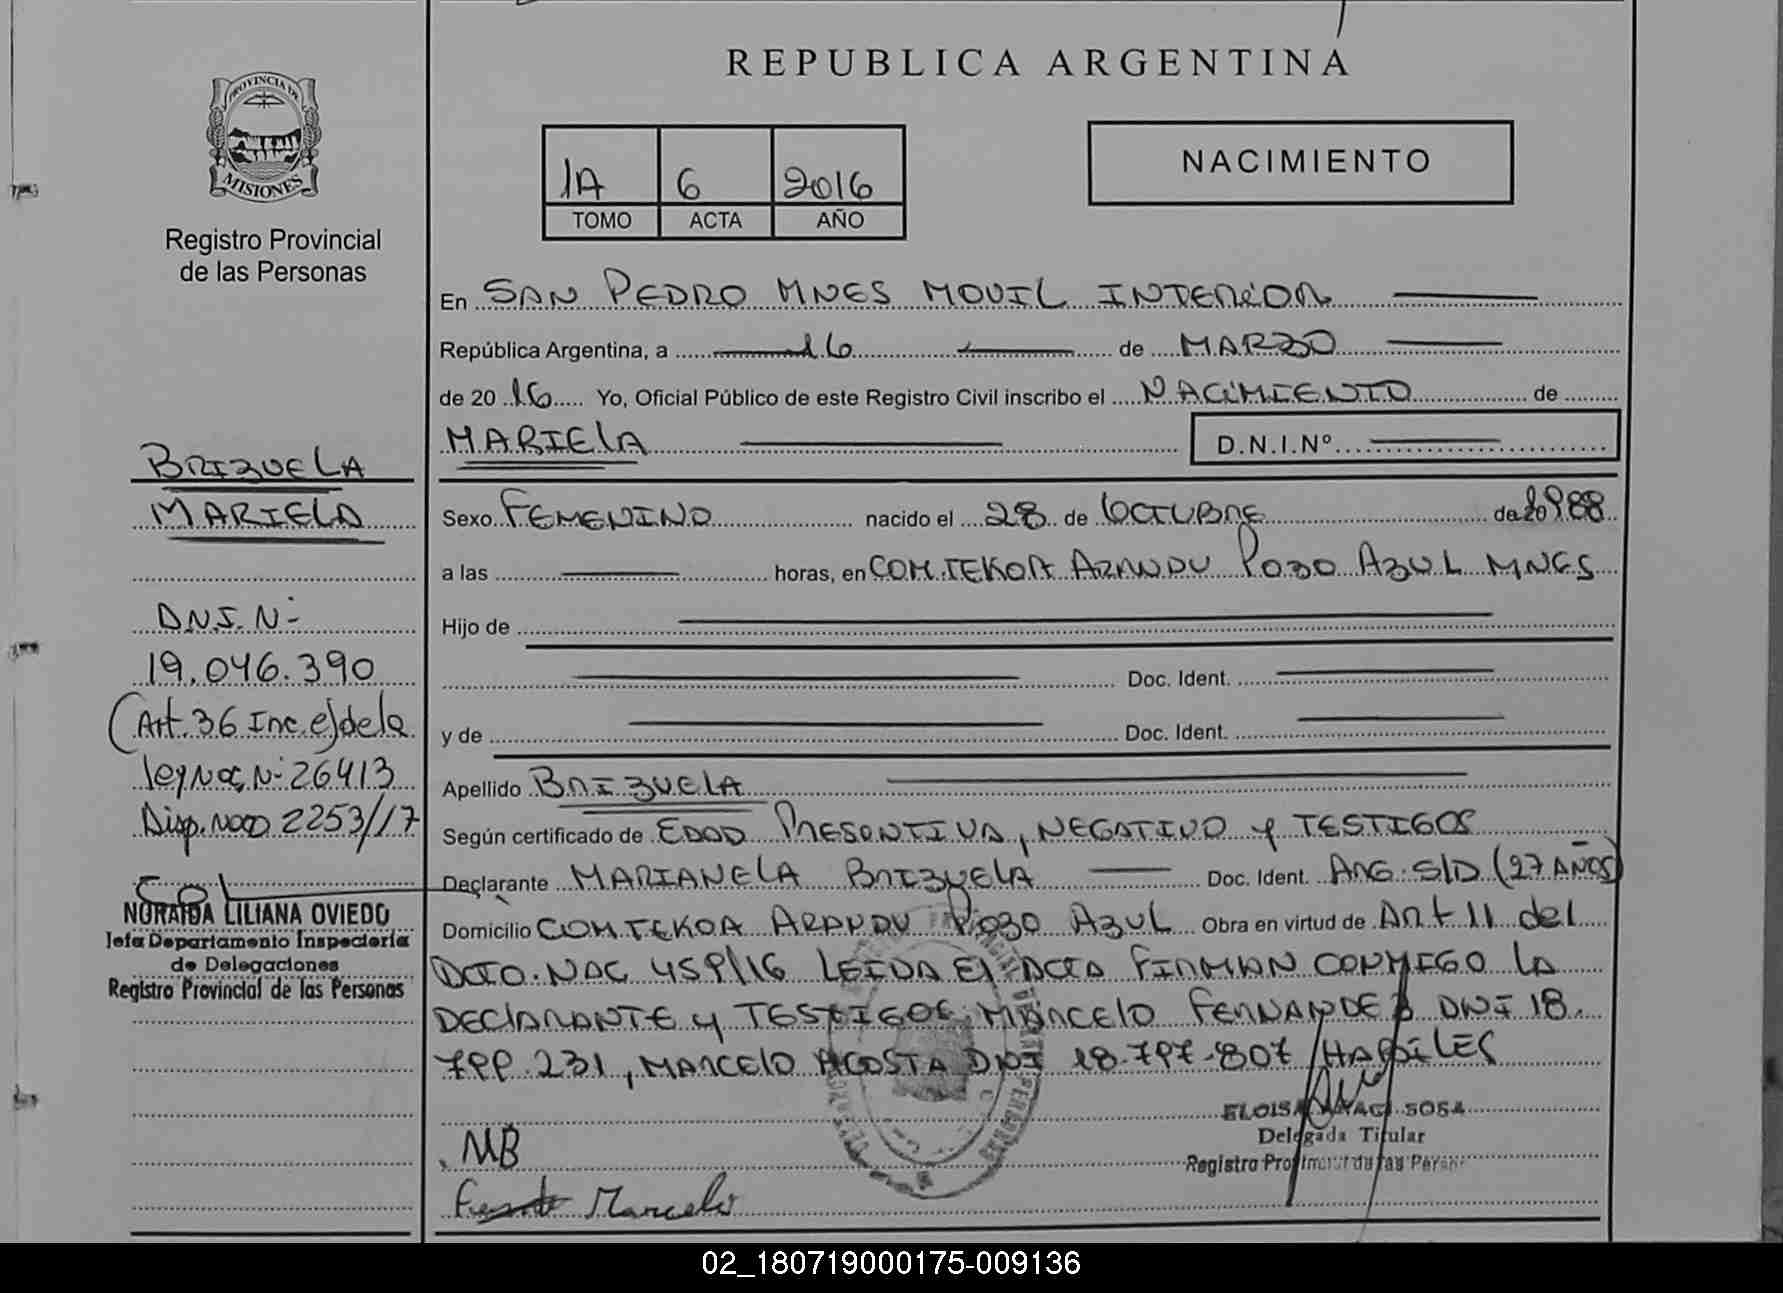 REPUBLICA ARGENTINA
PROVINCIA DE
MISIONES
Registro Provincial
de las Personas
1A 6 2016
TOMO ACTA AÑO
NACIMIENTO
En SAN PEDRO MNES MOVIL INTERIOR
República Argentina, a 16 de MARZO
de 2016 Yo, Oficial Público de este Registro Civil inscribo el NACIMIENTO de
MARIELA D.N.I.Nº
BRIZUELA
MARIELA
DNI. N-
19.046.390
(Art. 36 Inc. e) de la
ley Nac, N- 26413
Disp. 2253/17
NORAIDA LILIANA OVIEDO
Jefa Departamento Inspectoria
de Delegaciones
Registro Provincial de las Personas
Sexo FEMENINO nacido el 28 de OCTUBRE de 1988
a las horas, en COM. TEKOA ARANDU POZO AZUL MNES
Hijo de
Doc. Ident.
y de Doc. Ident.
Apellido BRIZUELA
Según certificado de EDAD PRESENTIVA, NEGATIVO y TESTIGOS
Declarante MARIANELA BRIZUELA Doc. Ident. ARG. S/D (27 AÑOS)
Domicilio COM TEKOA ARANDU POZO AZUL Obra en virtud de Art 11 del
DCTO. NAC 459/16 LEIDA El ACTA FIRMAN CONMIGO LA
DECLARANTE y TESTIGOS MARCELO FERNANDEZ DNI 18.
799.231, MARCELO ACOSTA DNI 18.797.807 HABILES
ELOISA SOSA
Delegada Titular
Registro Provincial de las Person
MB
Marcelo
02_180719000175-009136